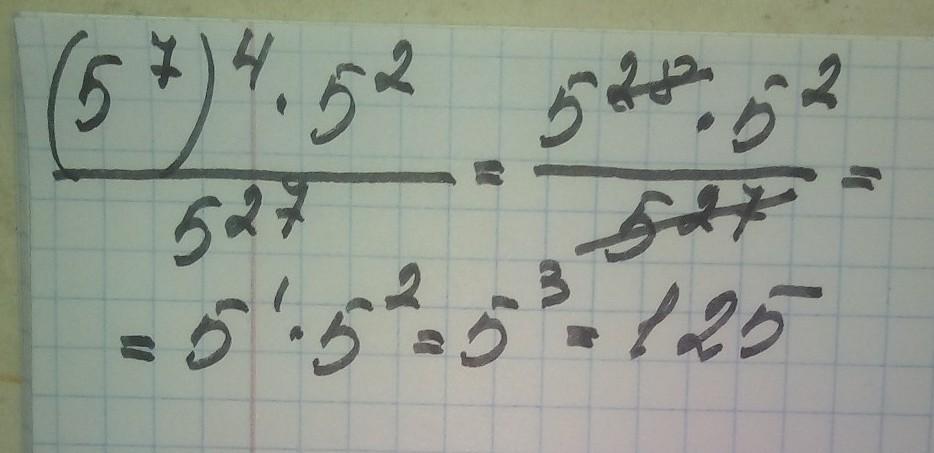 (5⁷)⁴ · 5² / 5²⁷ = 5²⁸ · 5² / 5²⁷ =
= 5¹ · 5² = 5³ = 125